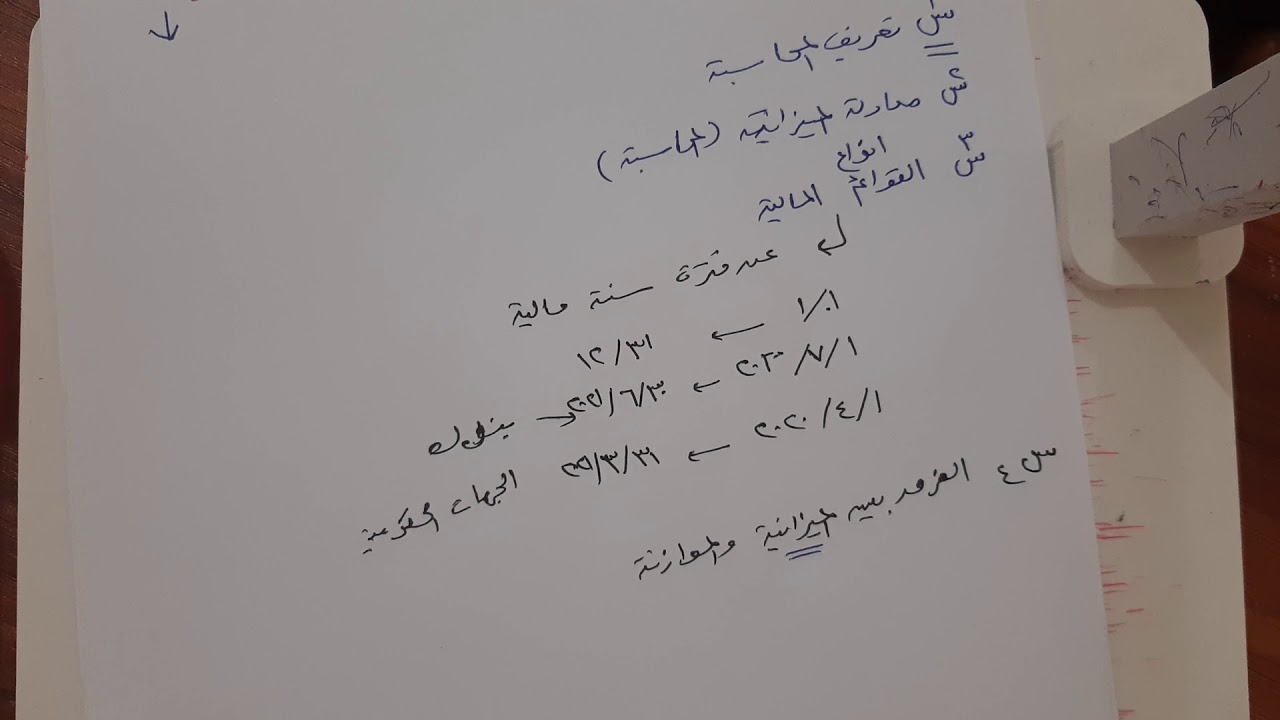 س تعريف المحاسبة
س٢ معادلة الميزانية (المحاسبة)
س٣ انواع القوائم المالية
عن فترة سنة مالية
١/٠١ ← ١٢/٣١
٢٠٢٠/٧/١ ← ٢٠٢١/٦/٣٠ بنوك
٢٠٢٠/٤/١ ← ٢٠٢١/٣/٣١ الجهات الحكومية
س٤ الفرق بين الميزانية والموازنة